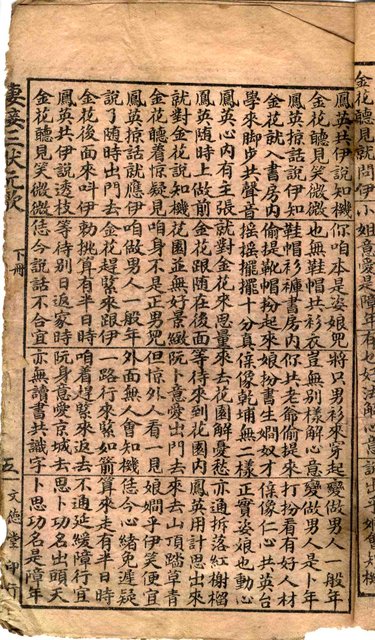 金花聽見就問伊　小姐意愛是障年
鳳英共伊說知機　你咱本是姿娘兜　將只男衫來穿起　變做男人一般年
金花聽見笑微微　也無鞋帽共衫衣　豈無別樣解心意　變做男人是卜年
鳳英掠話說伊知　鞋帽衫褲書房內　你共老爺偷提來　打扮看有好人材
金花就入書房內　偷提靴帽扮起來　娘扮書生嫺奴才　像仁心共英台
學來脚步共聲音　搖搖擺擺十分真　像乾埔無二樣　正實姿娘也動心
鳳英心內有主張　就對金花來思量　來去花園解憂愁　亦通拆落紅榭榴
鳳英隨時上做前　金花跟隨在後面　等待來到花園內　鳳英用計思出來
就對金花說知機　花園並無好景緻　阮卜意愛出門去　來去山頂踏草青
金花聽着驚疑見　咱身不是正男兜　但惊外人看一見　娘嫺乎伊笑便宜
鳳英掠話就應伊　咱做男人一般年　外面無人會知機　恁今心緒免遲疑
說了隨時出門去　金花趕緊來跟伊　一路行來緊如箭　算來走有半日時
金花後面來叫伊　動挑算有半日時　咱着趕緊來返去　不通延緩障行宜
鳳英共伊說透枝　等待別日返家時　阮身意愛京城去　思卜功名出頭天
金花聽見笑微微　恁今說話不合宜　亦無讀書共識字　卜思功名是障年
妻妾三伏元歌　下冊　五　文德堂印行